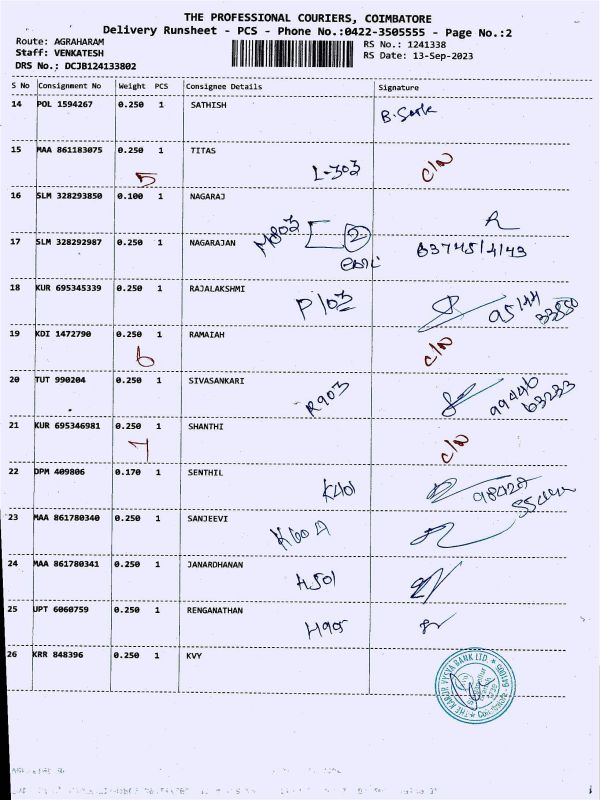 THE PROFESSIONAL COURIERS, COIMBATORE
Delivery Runsheet - PCS - Phone No.:0422-3505555 - Page No.:2
Route: AGRAHARAM
Staff: VENKATESH
DRS No.; DCJB124133802
RS No.: 1241338
RS Date: 13-Sep-2023
S No Consignment No Weight PCS Consignee Details Signature
14 POL 1594267 0.250 1 SATHISH
15 MAA 861183075 0.250 1 TITAS L-303 C/N
5
16 SLM 328293850 0.100 1 NAGARAJ
17 SLM 328292987 0.250 1 NAGARAJAN M803 2
18 KUR 695345339 0.250 1 RAJALAKSHMI P103 95144
33550
19 KDI 1472790 0.250 1 RAMAIAH C/N
6
20 TUT 990204 0.250 1 SIVASANKARI R903 99446
63233
21 KUR 695346981 0.250 1 SHANTHI C/N
7
22 DPM 409806 0.170 1 SENTHIL K401 98422
23 MAA 861780340 0.250 1 SANJEEVI K60A
24 MAA 861780341 0.250 1 JANARDHANAN H501
25 UPT 6060759 0.250 1 RENGANATHAN H905
26 KRR 848396 0.250 1 KVY
THE KARUR VYSYA BANK LTD.